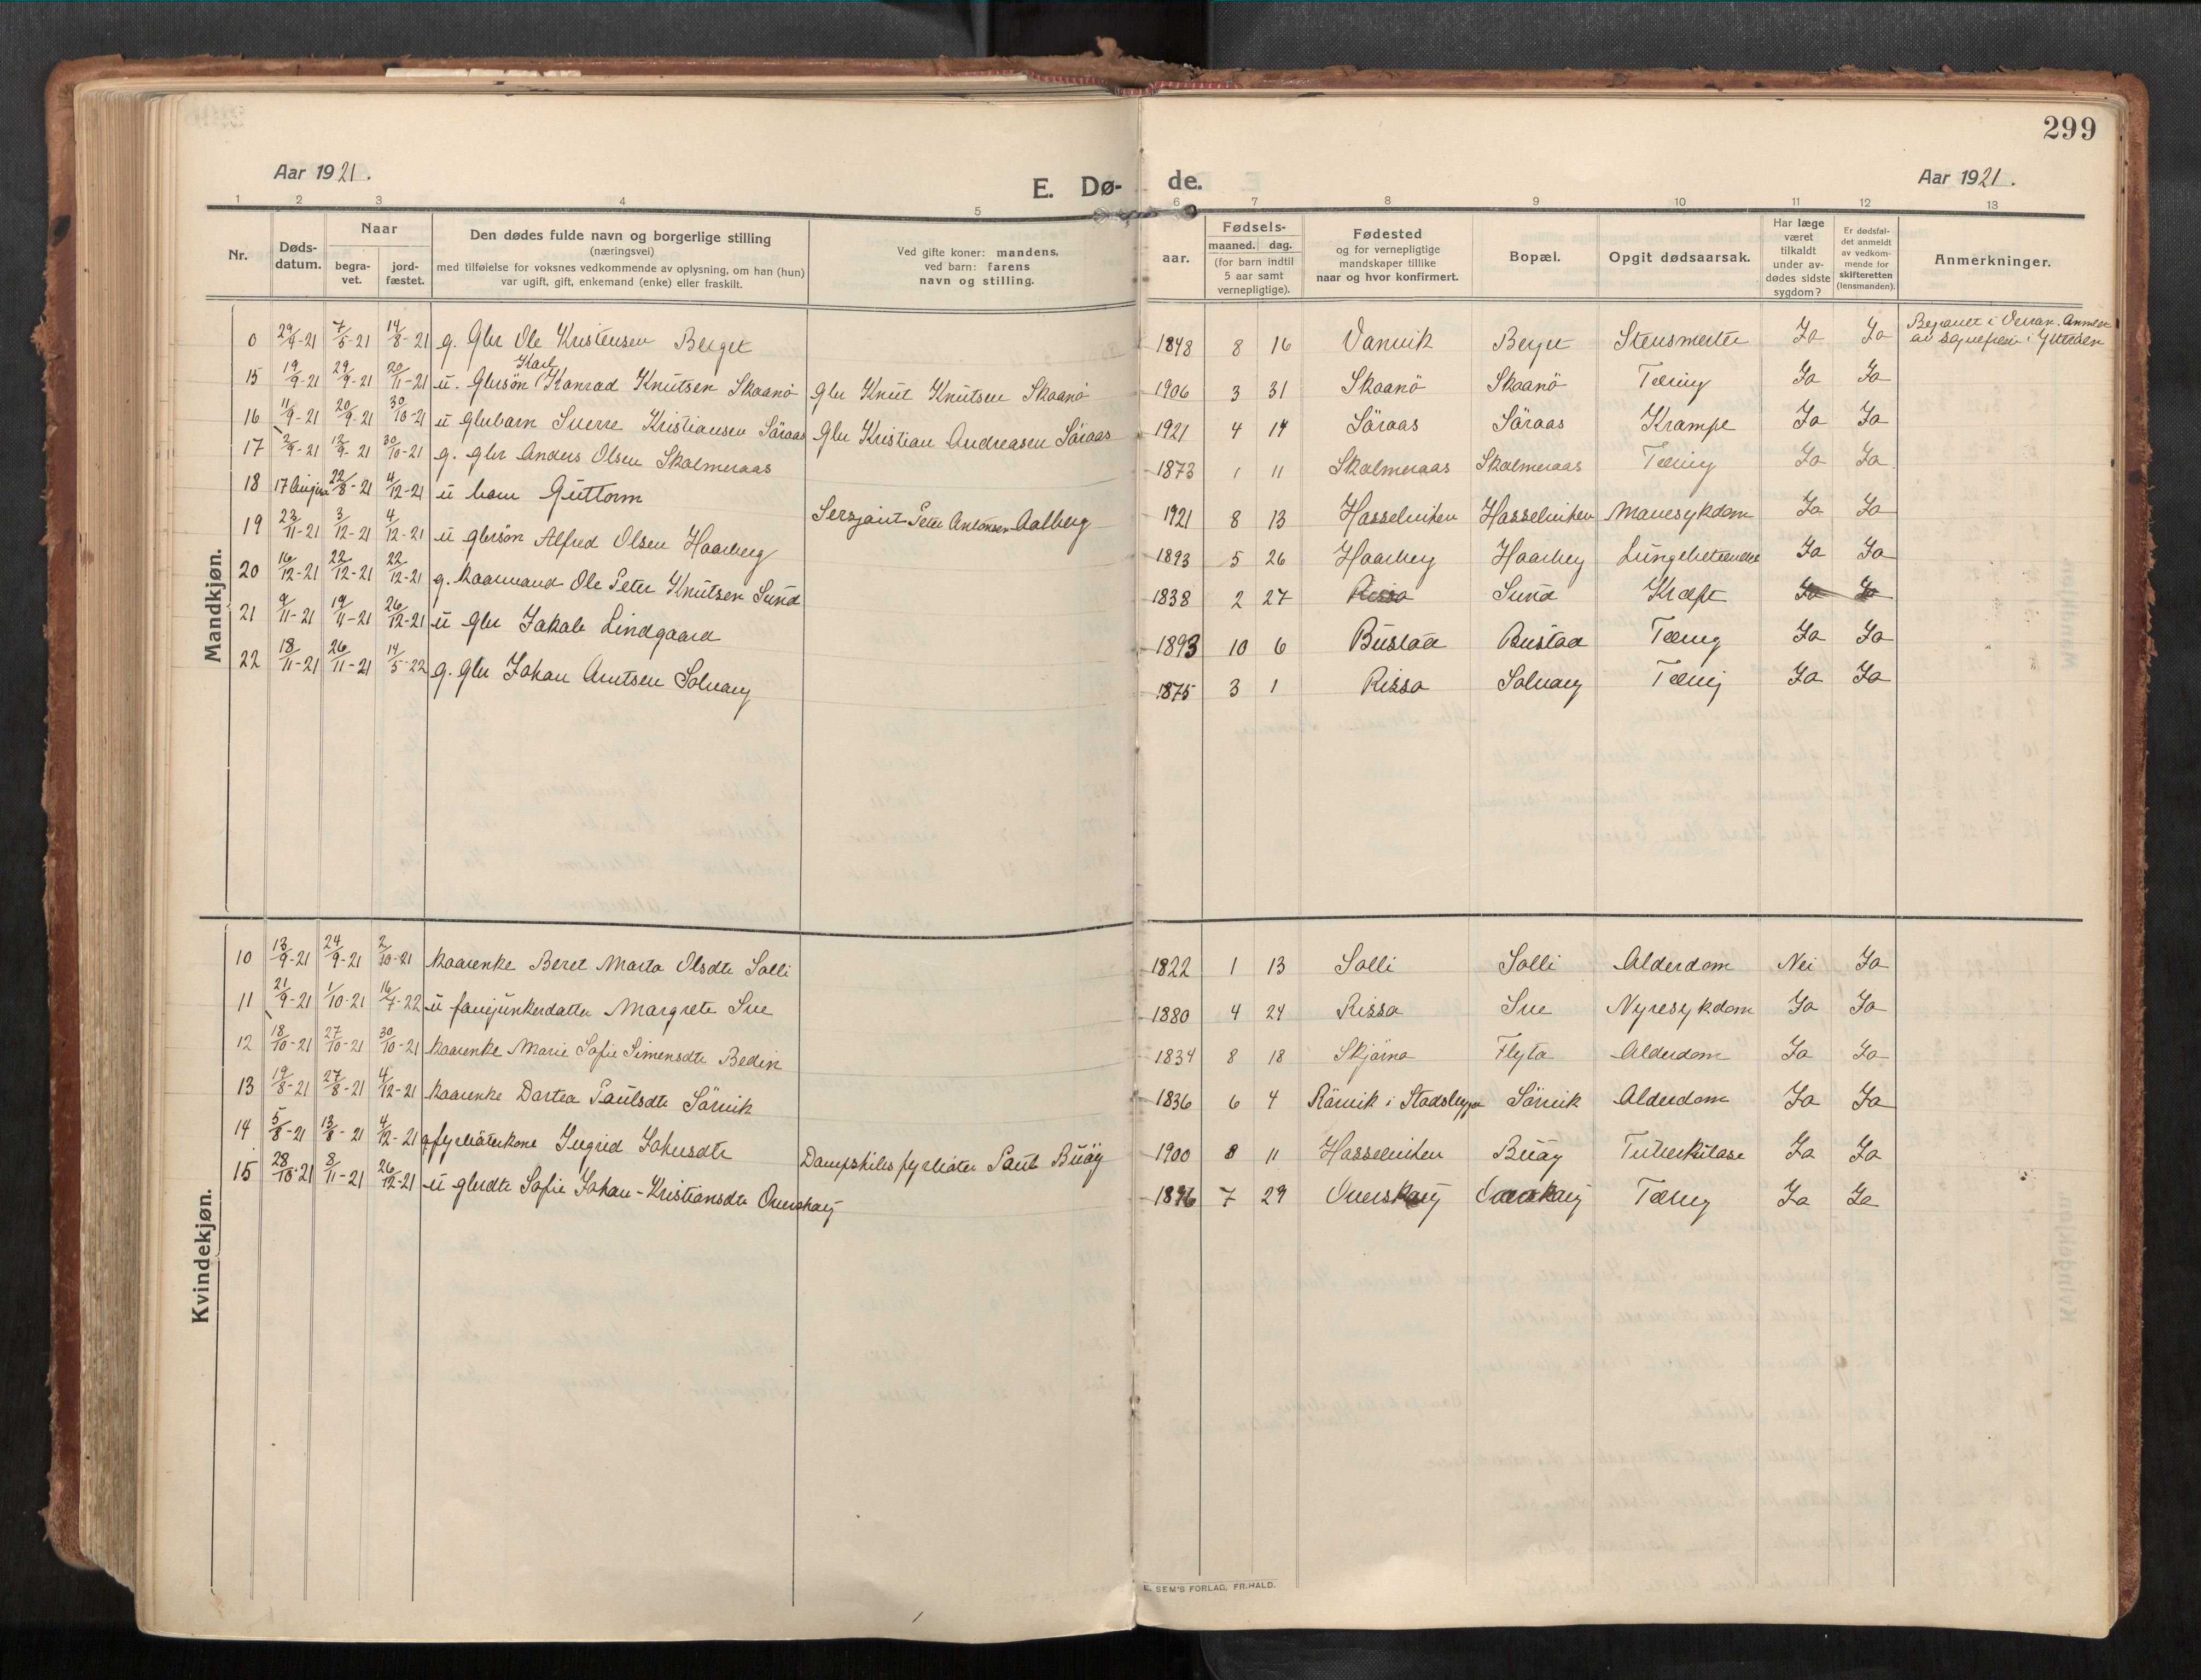 299
Aar 1921.
E. Dø- de.
Aar 1921.
1 2 3 4 5 6 7 8 9 10 11 12 13
Nr.
Døds-
datum.
Naar
begra-
vet.
jord-
fæstet.
Den dødes fulde navn og borgerlige stilling
(næringsvei)
med tilføielse for voksnes vedkommende av oplysning, om han (hun)
var ugift, gift, enkemand (enke) eller fraskilt.
Ved gifte koner: mandens,
ved barn: farens
navn og stilling.
Fødsels-
aar.
maaned. dag.
(for barn indtil
5 aar samt
vernepligtige).
Fødested
og for vernepligtige
mandskaper tillike
naar og hvor konfirmert.
Bopæl.
Opgit dødsaarsak.
Har læge
været
tilkaldt
under av-
dødes sidste
sygdom?
Er dødsfal-
det anmeldt
av vedkom-
mende for
skifteretten
(lensmanden).
Anmerkninger.
Mandkjøn.
0 29/4-21 7/5-21 14/8-21 g. Gbr Ole Kristensen Berget 1848 8 16 Vanvik Berget Ja Ja
Karl
15 19/9-21 29/9-21 20/11-21 u. Gbrsøn Konrad Knutsen Skaanö Gbr Knut Knutsen Skaanö 1906 3 31 Skaanö Skaanö Tæring Ja Ja
16 11/9-21 20/9-21 30/10-21 u gbrbarn Sverre Kristiansen Säraas Gbr Kristian Andreasen Säraas 1921 4 14 Säraas Säraas Krampe Ja Ja
17 2/9-21 12/9-21 30/10-21 g. gbr Anders Olsen Skalmeraas 1873 1 11 Skalmeraas Skalmeraas Tæring Ja Ja
18 22/8-21 4/12-21 u barn Guttorm Sersjant Peter Antonsen Aalberg 1921 8 13 Hasselviken Hasselviken Mavesykdom Ja Ja
19 23/11-21 3/12-21 4/12-21 u gbrsøn Alfred Olsen Haarberg 1893 5 26 Haarberg Haarberg Lungebetændelse Ja Ja
20 16/12-21 22/12-21 22/12-21 g. kaarmand Ole Peter Knutsen Sund 1838 2 27 Rissa Sund Kræft Ja Ja
21 9/11-21 19/11-21 26/12-21 u gbr Jakob Lindgaard 1893 10 6 Bustad Bustad Tæring Ja Ja
22 18/11-21 26/11-21 14/5-22 g. gbr Johan Arntsen Solvang 1875 3 1 Rissa Solvang Tæring Ja Ja
Kvindekjøn.
10 13/9-21 24/9-21 2/10-21 kaarenke Beret Marta Olsdtr Solli 1822 1 13 Solli Solli Alderdom Nei Ja
11 21/9-21 1/10-21 16/7-22 u fanejunkerdatter Margrete Sve 1880 4 24 Rissa Sve Nyresykdom Ja Ja
12 18/10-21 27/10-21 30/10-21 kaarenke Marie Sofie Simensdtr Bedin 1834 8 18 Skjärna Flyta Alderdom Ja Ja
13 19/8-21 27/8-21 4/12-21 kaarenke Dortea Paulsdtr Sörvik 1836 6 4 Rärvik i Stadsbygn Sörvik Alderdom Ja Ja
14 5/8-21 13/8-21 4/12-21 g fyrböterkone Ingrid Johnsdtr Dampskibsfyrböter Paul Buöy 1900 8 11 Hasselviken Buöy Tuberkulose Ja Ja
15 28/10-21 8/11-21 26/12-21 u gbrdtr Sofie Johan-Kristiansdtr Overskaug 1896 7 29 Overskaug Overskaug Tæring Ja Ja
E. SEM'S FORLAG, FR.HALD.